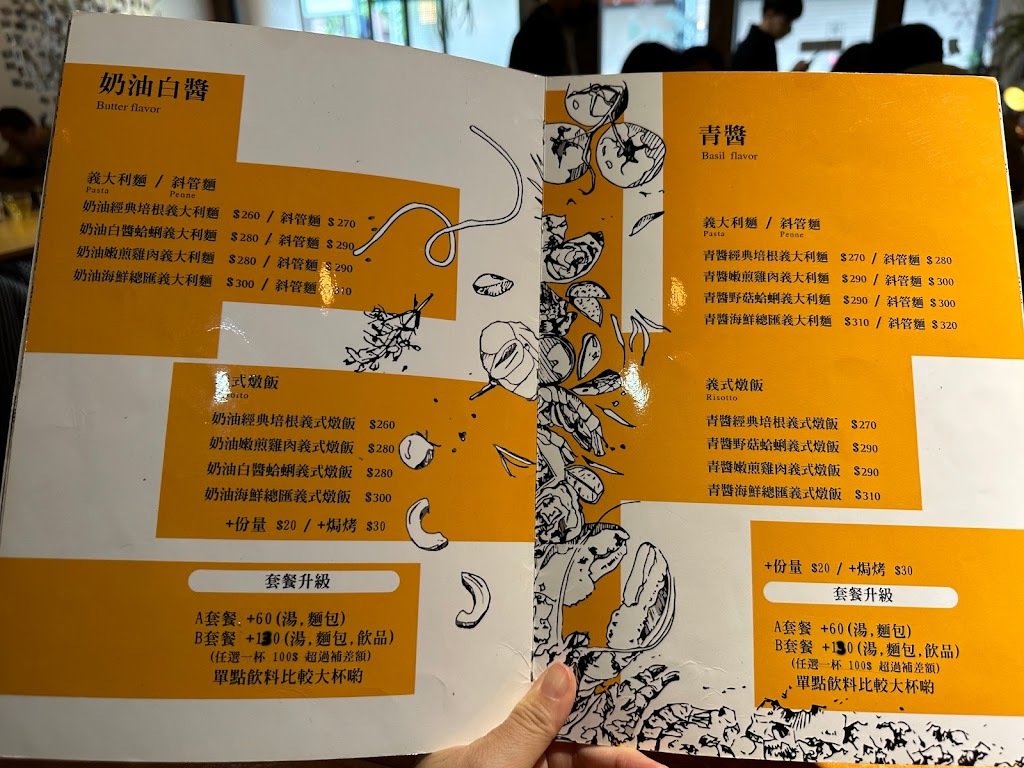 奶油白醬
Butter flavor
義大利麵 / 斜管麵
Pasta Penne
奶油經典培根義大利麵 $260 / 斜管麵 $270
奶油白醬蛤蜊義大利麵 $280 / 斜管麵 $290
奶油嫩煎雞肉義大利麵 $280 / 斜管麵 $290
奶油海鮮總匯義大利麵 $300 / 斜管麵
式燉飯
奶油經典培根義式燉飯 $260
奶油嫩煎雞肉義式燉飯 $280
奶油白醬蛤蜊義式燉飯 $280
奶油海鮮總匯義式燉飯 $300
+份量 $20 / +焗烤 $30
套餐升級
A套餐 +60(湯,麵包)
B套餐 (湯,麵包,飲品)
(任選一杯 100$ 超過補差額)
單點飲料比較大杯喲
青醬
Basil flavor
義大利麵 / 斜管麵
Pasta Penne
青醬經典培根義大利麵 $270 / 斜管麵 $280
青醬嫩煎雞肉義大利麵 $290 / 斜管麵 $300
青醬野菇蛤蜊義大利麵 $290 / 斜管麵 $300
青醬海鮮總匯義大利麵 $310 / 斜管麵 $320
義式燉飯
Risotto
青醬經典培根義式燉飯 $270
青醬野菇蛤蜊義式燉飯 $290
青醬嫩煎雞肉義式燉飯 $290
青醬海鮮總匯義式燉飯 $310
+份量 $20 / +焗烤 $30
套餐升級
A套餐 +60(湯,麵包)
B套餐 (湯,麵包,飲品)
(任選一杯 100$ 超過補差額)
單點飲料比較大杯喲